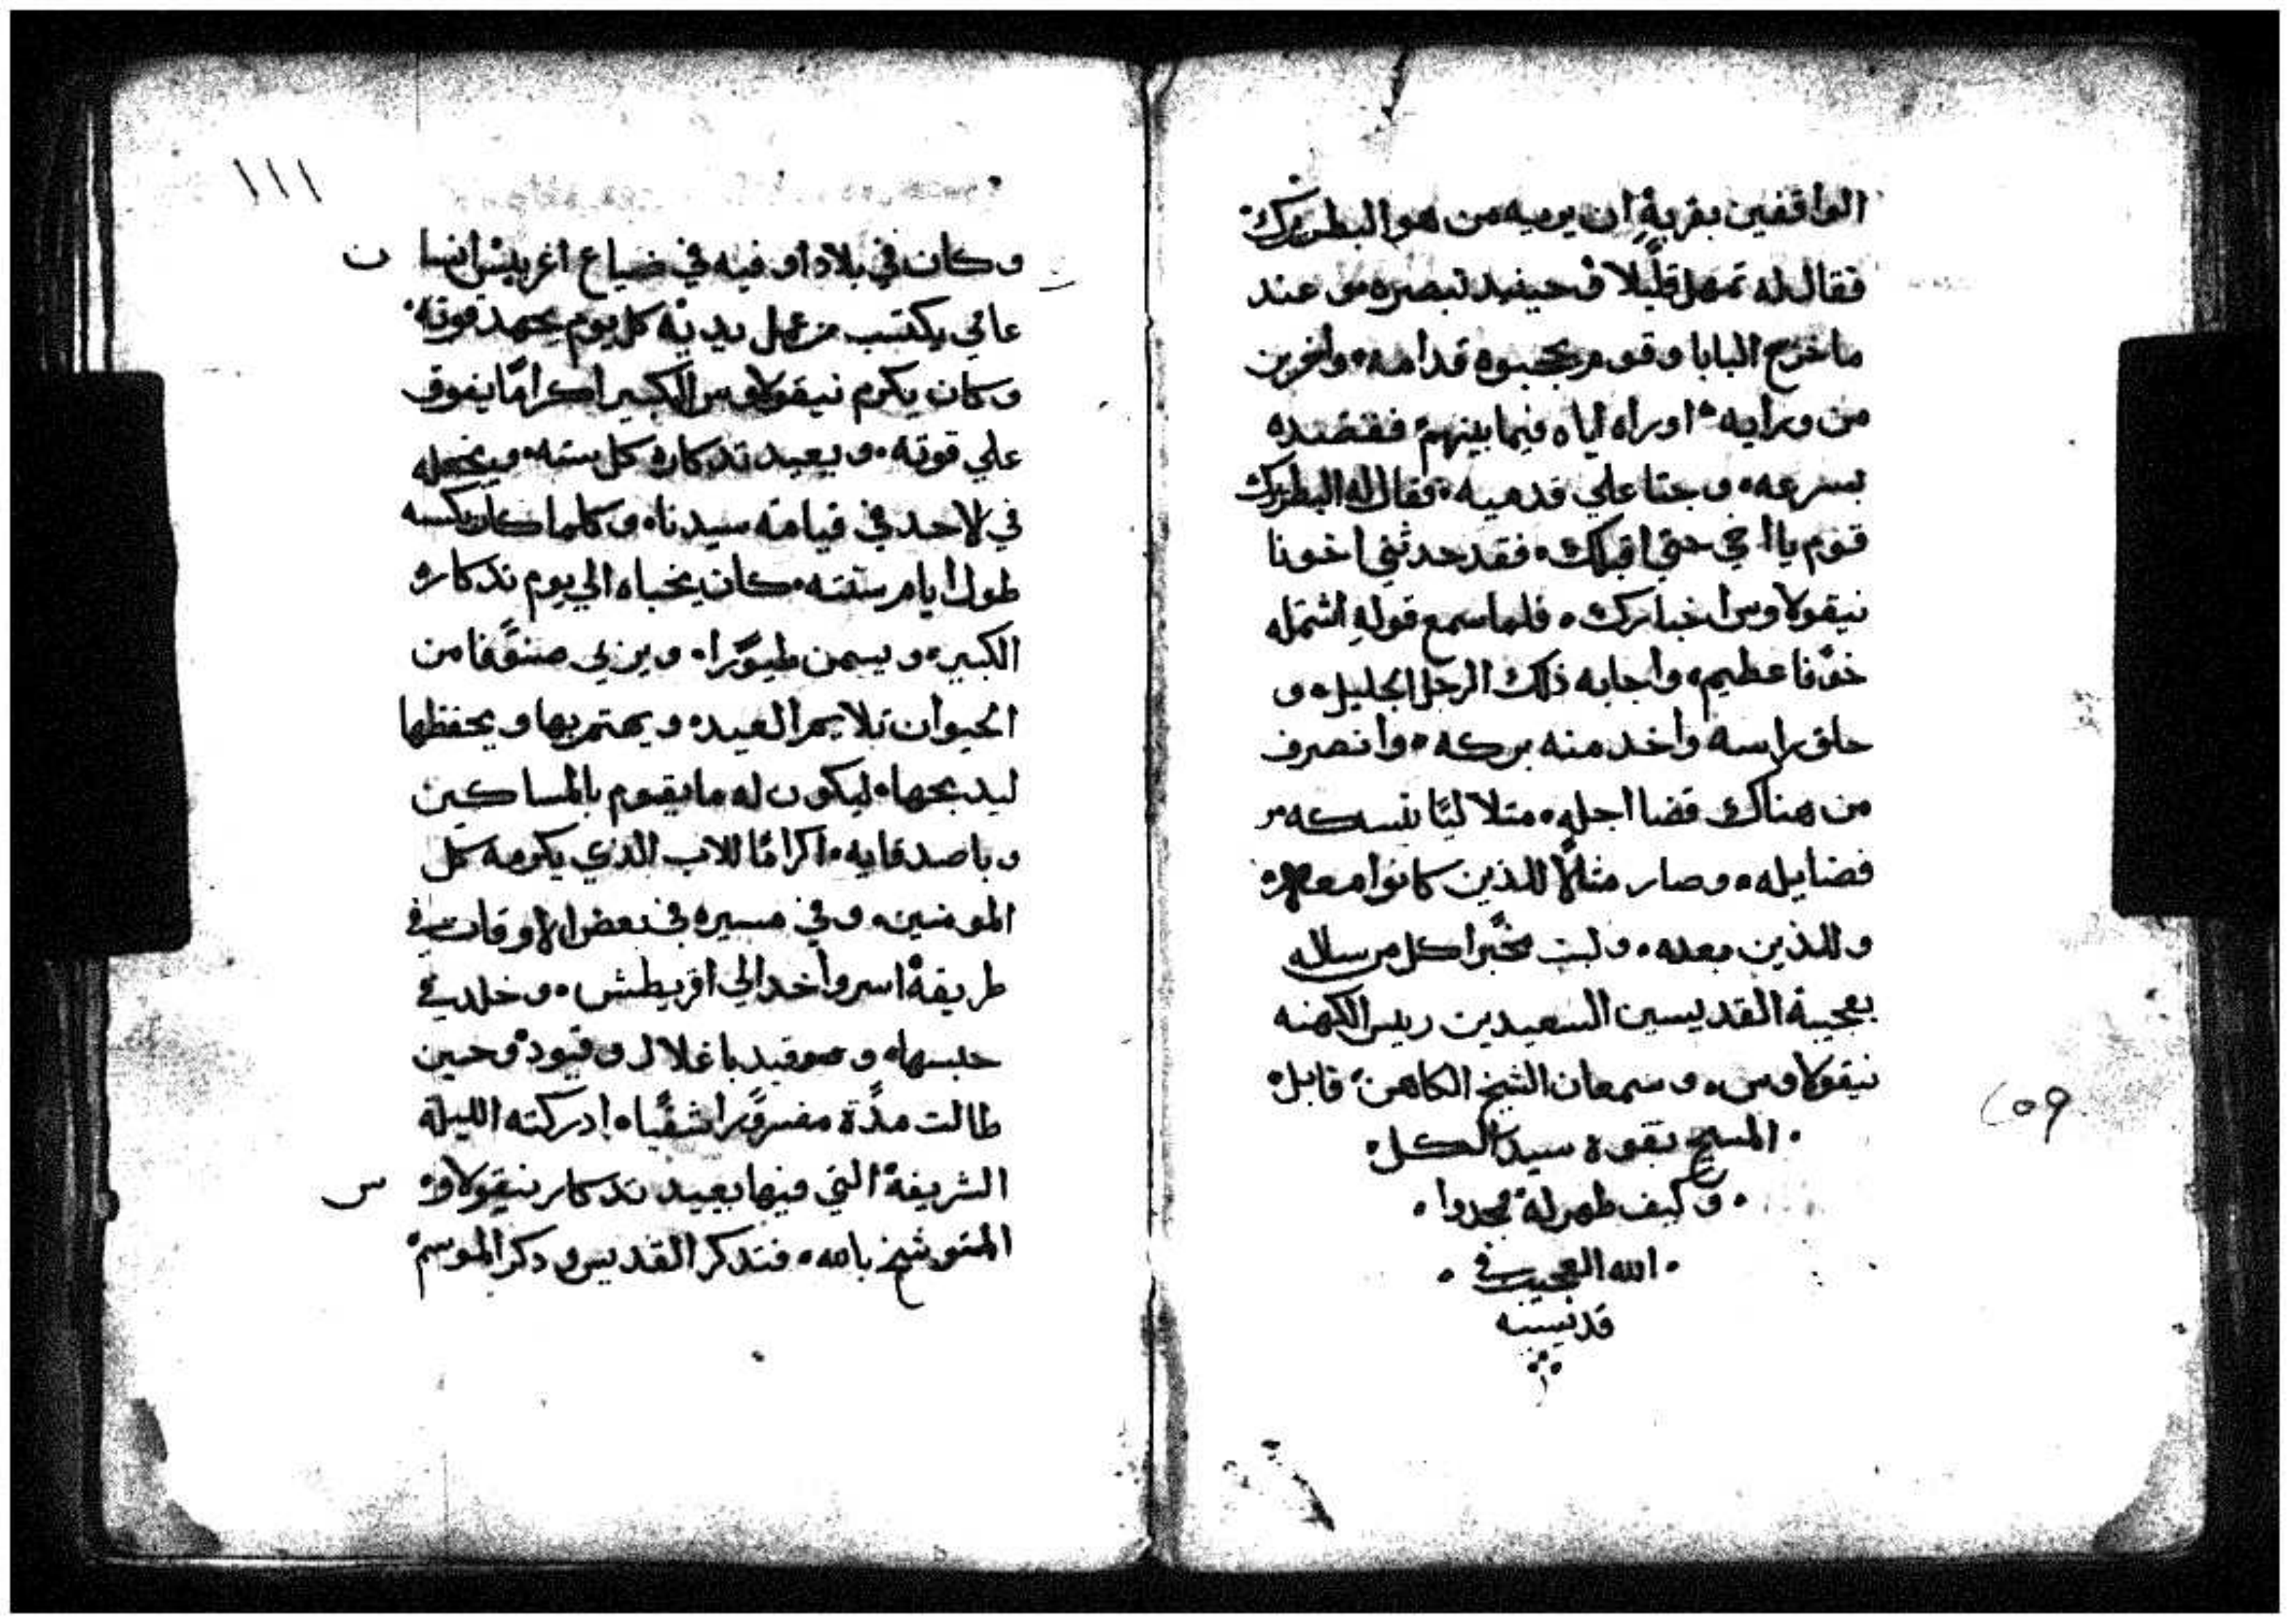 الواقفين بقربهِ ان يريه من هو البطريرك
فقال له تمهل قليلًا فحينيد تبصره هو عند
ما خرج البابا وقوم يحجبوه قدامه واخرين
من ورايه اوراه اياه فيما بينهم فقصده
بسرعه وجتا علي قدميه فقال له البطريرك
قوم يا اخي حتي اقبلك فقد حدثني اخونا
نيقولاوس اخبارك فلما سمع قوله اشتمله
خوفا عظيم واجابه ذلك الرجل الجليل و
حلق راسه واخد منه بركه وانصرف
من هناك قضا اجله متلاليًا بنسكه
فضايله وصار مثالًا للذين كانوا معه
وللذين بعده ولبت مخبرًا كل من ساله
بعجيبة القديسين السعيدين رييس الكهنه
نيقولاوس وسمعان الشيخ الكاهن قابل
المسيح بقوة سيد الكل
وكيف ظهر له مجدوا
الله العجيب في
قديسيه
٢٥٩
١١١
وكان في بلاد اوفيه في ضياع اغريبس انسان
عامي يكتسب من عمل يديه كل يوم بجهد قوته
وكان يكرم نيقولاوس الكبير اكرامًا يفوق
علي قوته ويعيد تدكاره كل سنه
في لاحد في قيامة سيدنا وكلما كان يكسبه
طول ايام سنته كان يخباه الي يوم تدكار
الكبير ويسمن طيورًا ويربي صنوفا من
الحيوان تلايم العيد ويهتم بها ويحفظها
ليدبحها ليكون له ما يقوم بالمساكين
وباصدقايه اكرامًا للاب الدي يكرمه كل
المومنين وفي مسيره في بعض الاوقات في
طريقه اسر واخد الي اقريطش وخلد في
حبسها وهو مقيد باغلال وقيود وحين
طالت مدة ادركته الليلة
الشريفة التي فيها بعيد تدكار نيقولاوس
المتوشح بالله فتدكر القديس ودكر الموسم